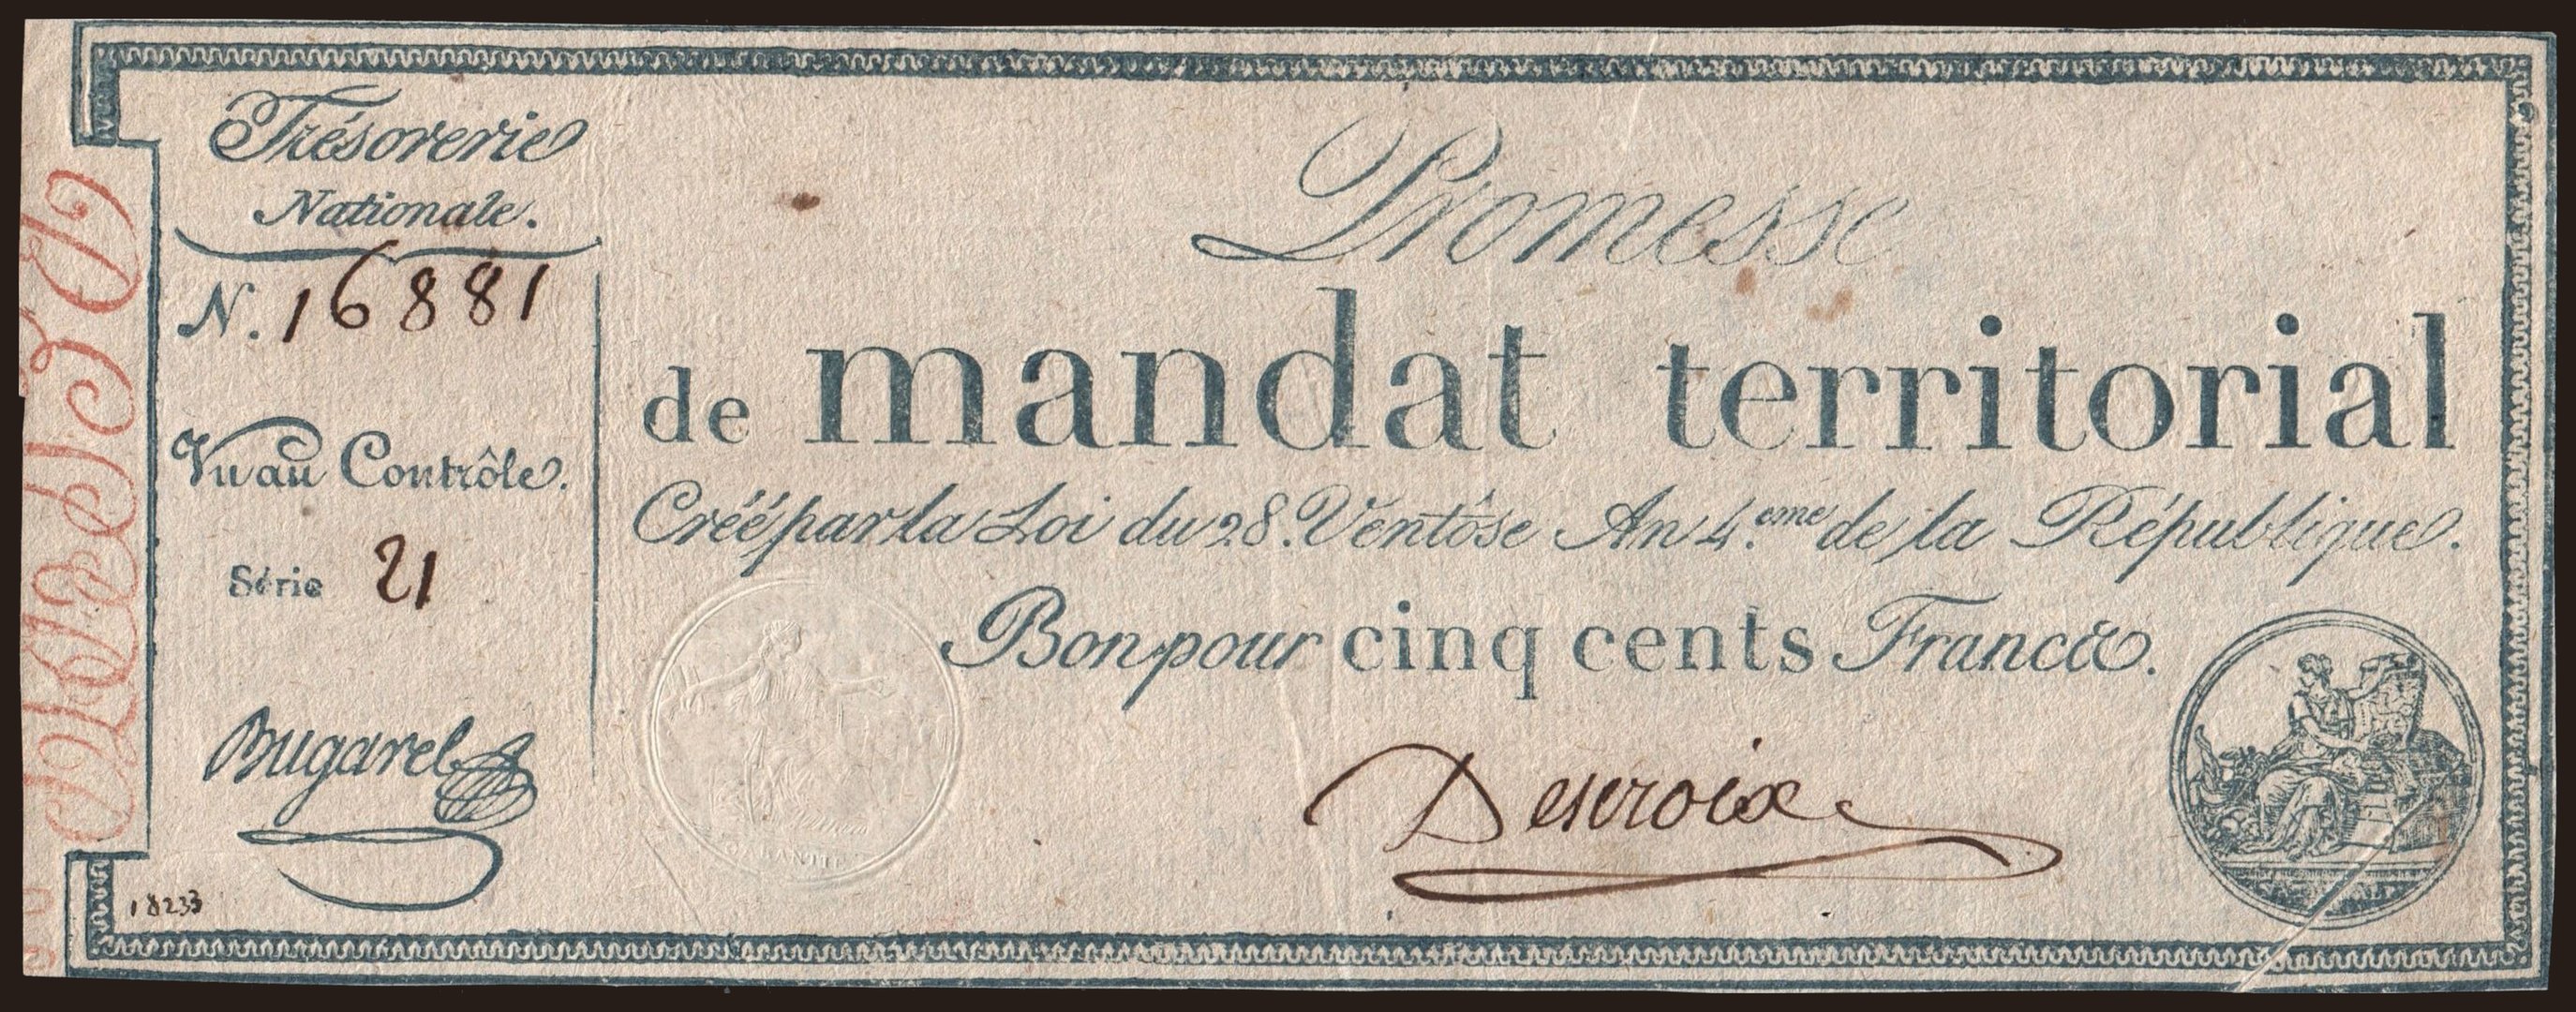 Trésorerie
Nationale.
N. 16881
Vu au Contrôle.
Série 21
Bugarel
18233
Promesse
de mandat territorial
Créé par la Loi du 28. Ventôse An 4.eme de la République.
Bon pour cinq cents Francs.
Descroix
GARANTIE